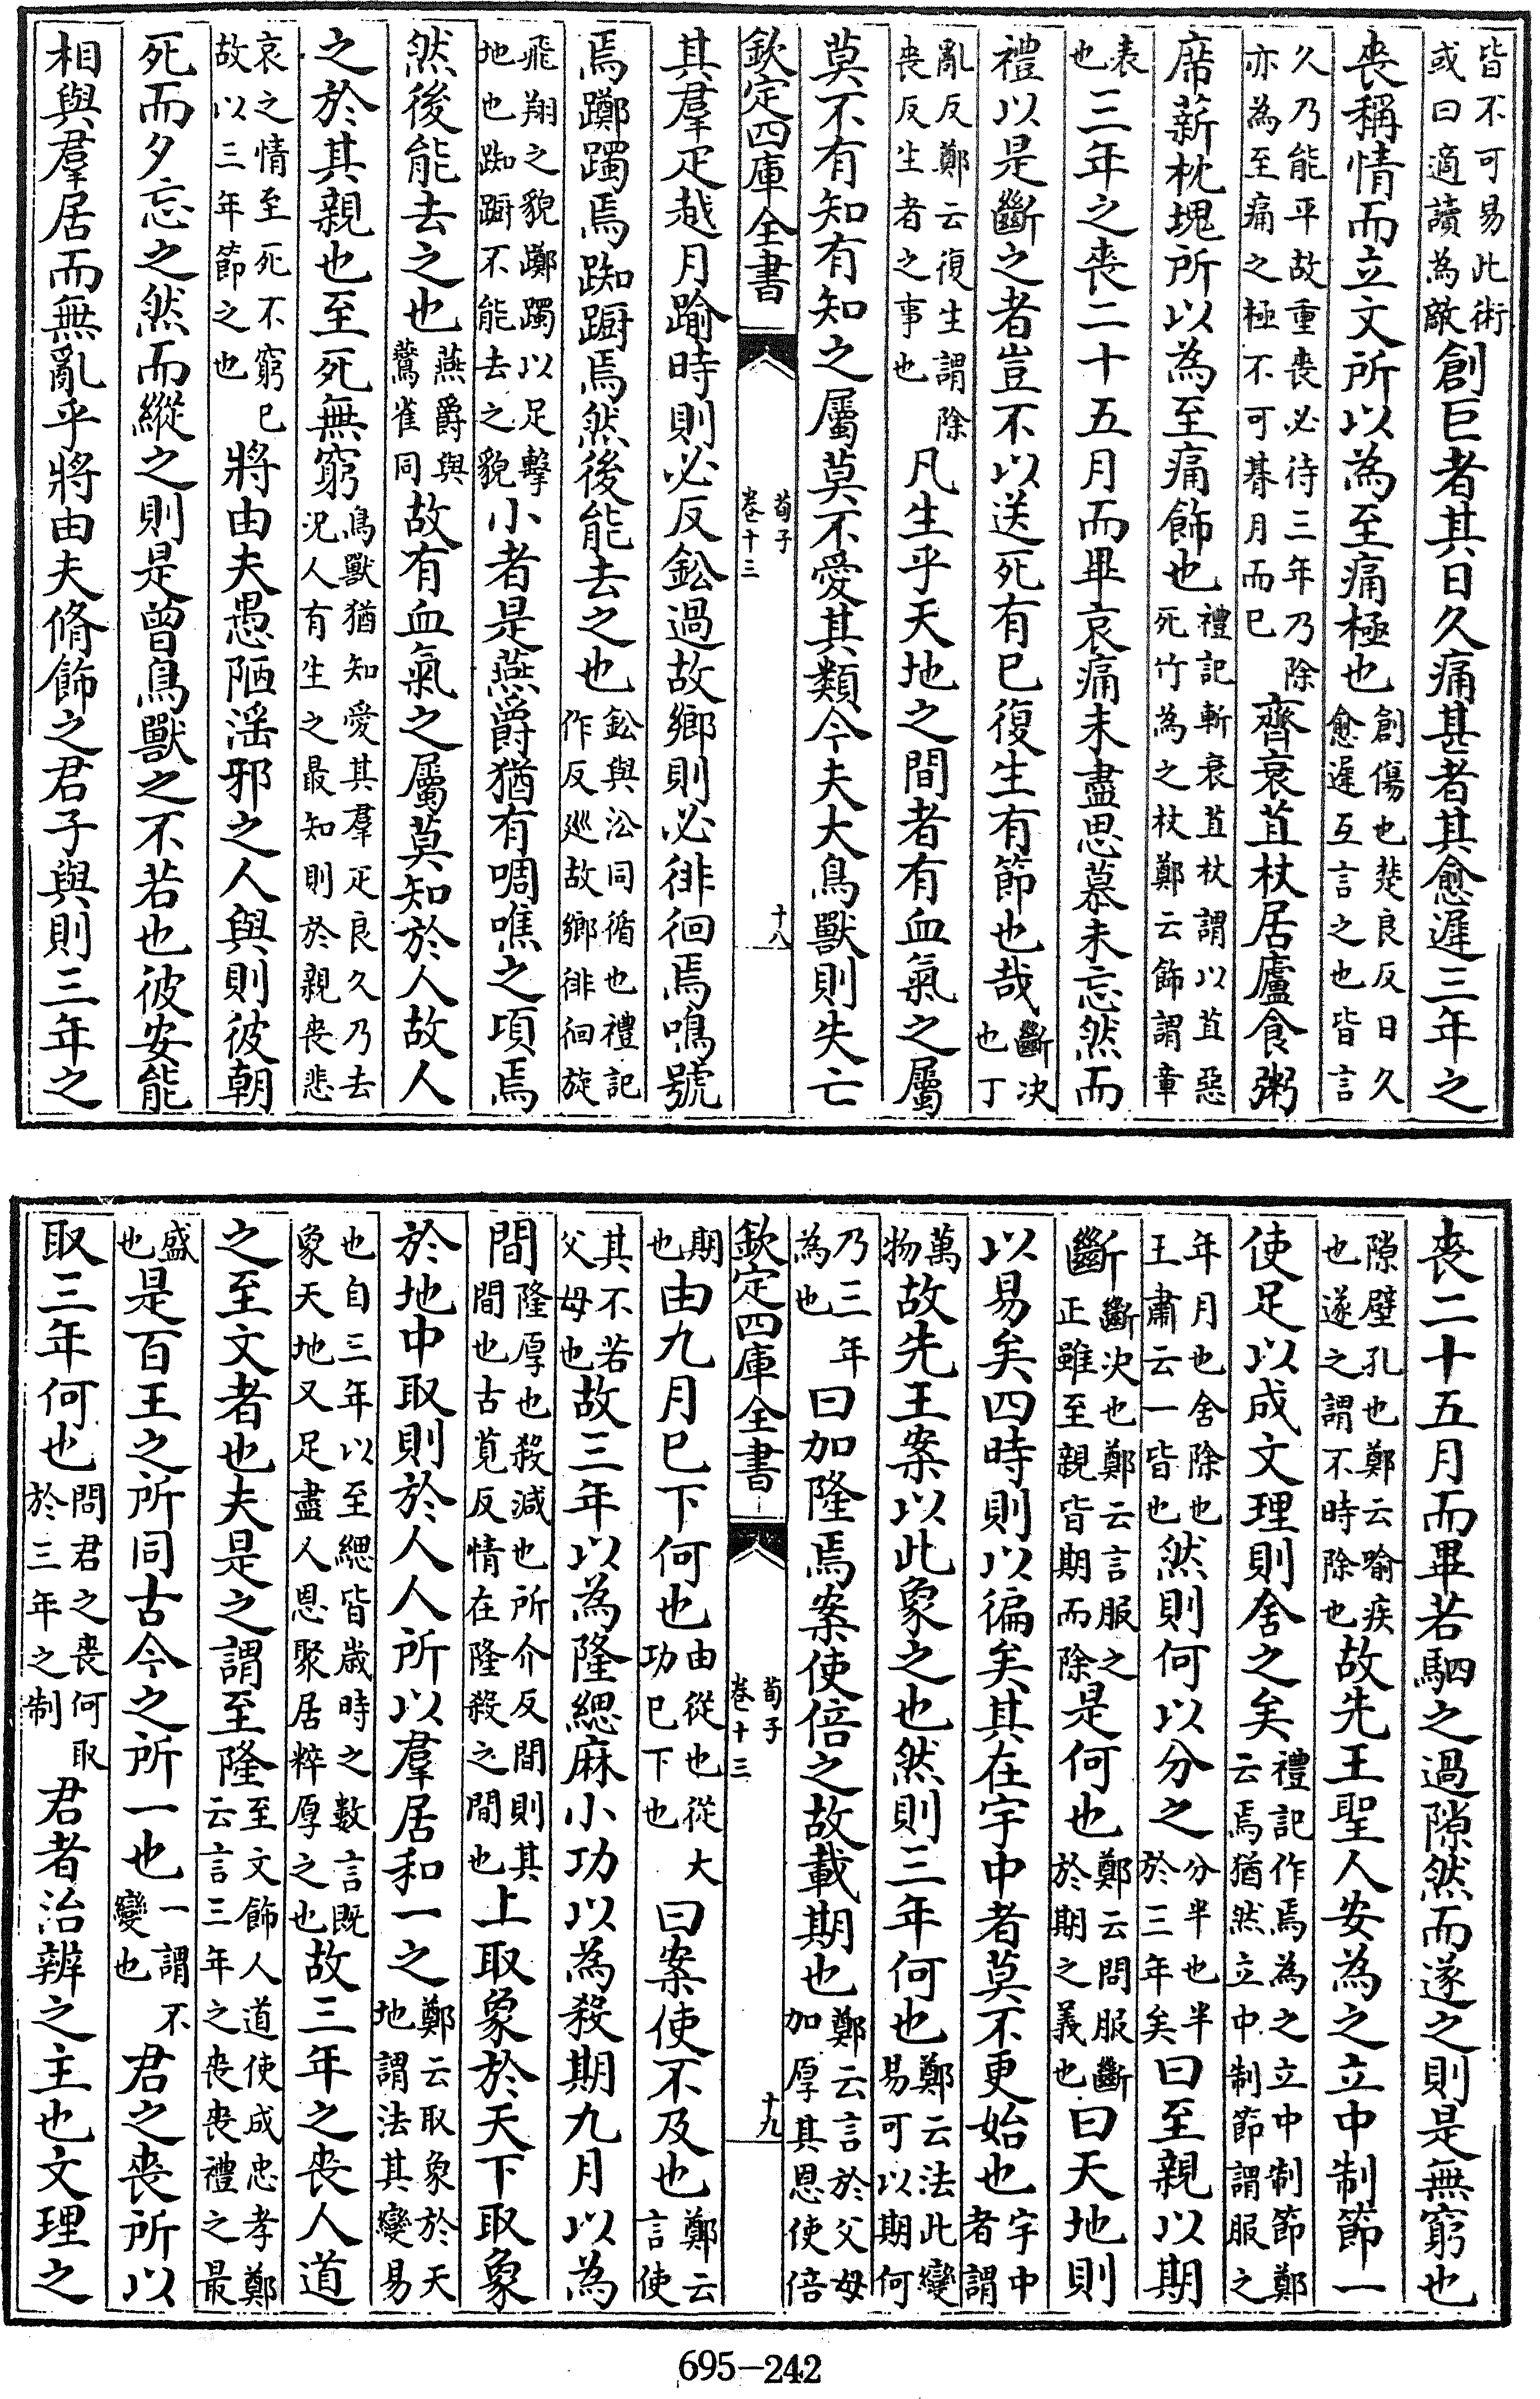 皆不可易此術或曰適讀為敵創巨者其日久痛甚者其愈遲三年之
喪稱情而立文所以為至痛極也創傷也楚良反日久愈遲互言之也皆言
久乃能平故重喪必待三年乃除亦為至痛之極不可朞月而已齊衰苴杖居廬食粥
席薪枕塊所以為至痛飾也禮記斬衰苴杖謂以苴惡死竹為之杖鄭云飾謂章
表也三年之喪二十五月而畢哀痛未盡思慕未忘然而
禮以是斷之者豈不以送死有已復生有節也哉斷決也丁
亂反鄭云復生謂除喪反生者之事也凡生乎天地之間者有血氣之屬
莫不有知有知之屬莫不愛其類今夫大鳥獸則失亡
欽定四庫全書 荀子 卷十三 十八
其羣疋越月踰時則必反鈆過故鄉則必徘徊焉鳴號
焉躑躅焉踟蹰焉然後能去之也鈆與㳂同循也禮記作反廵故鄉徘徊旋
飛翔之貌躑躅以足擊地也踟蹰不能去之貌小者是燕爵猶有啁噍之頃焉
然後能去之也燕爵與鷰雀同故有血氣之屬莫知於人故人
之於其親也至死無窮鳥獸猶知愛其羣疋良久乃去況人有生之最知則於親喪悲
哀之情至死不窮已故以三年節之也將由夫愚陋淫邪之人與則彼朝
死而夕忘之然而縱之則是曾鳥獸之不若也彼安能
相與羣居而無亂乎將由夫脩飾之君子與則三年之
喪二十五月而畢若駟之過隙然而遂之則是無窮也
隙壁孔也鄭云喻疾也遂之謂不時除也故先王聖人安為之立中制節一
使足以成文理則舍之矣禮記作焉為之立中制節鄭云焉猶然立中制節謂服之
年月也舍除也王肅云一皆也然則何以分之分半也半於三年矣曰至親以期
斷斷決也鄭云言服之正雖至親皆期而除是何也鄭云問服斷於期之義也曰天地則
以易矣四時則以徧矣其在宇中者莫不更始也宇中者謂
萬物故先王案以此象之也然則三年何也鄭云法此變易可以期何
乃三年為也曰加隆焉案使倍之故載期也鄭云言於父母加厚其恩使倍
欽定四庫全書 荀子 卷十三 十九
期也由九月已下何也由從也從大功已下也曰案使不及也鄭云言使
其不若父母也故三年以為隆緦麻小功以為殺期九月以為
間隆厚也殺減也所介反間則其間也古莧反情在隆殺之間也上取象於天下取象
於地中取則於人人所以羣居和一之鄭云取象於天地謂法其變易
也自三年以至緦皆歲時之數言既象天地又足盡人恩聚居粹厚之也故三年之喪人道
之至文者也夫是之謂至隆至文飾人道使成忠孝鄭云言三年之喪喪禮之最
盛也是百王之所同古今之所一也一謂不變也君之喪所以
取三年何也問君之喪何取於三年之制君者治辨之主也文理之
695-242